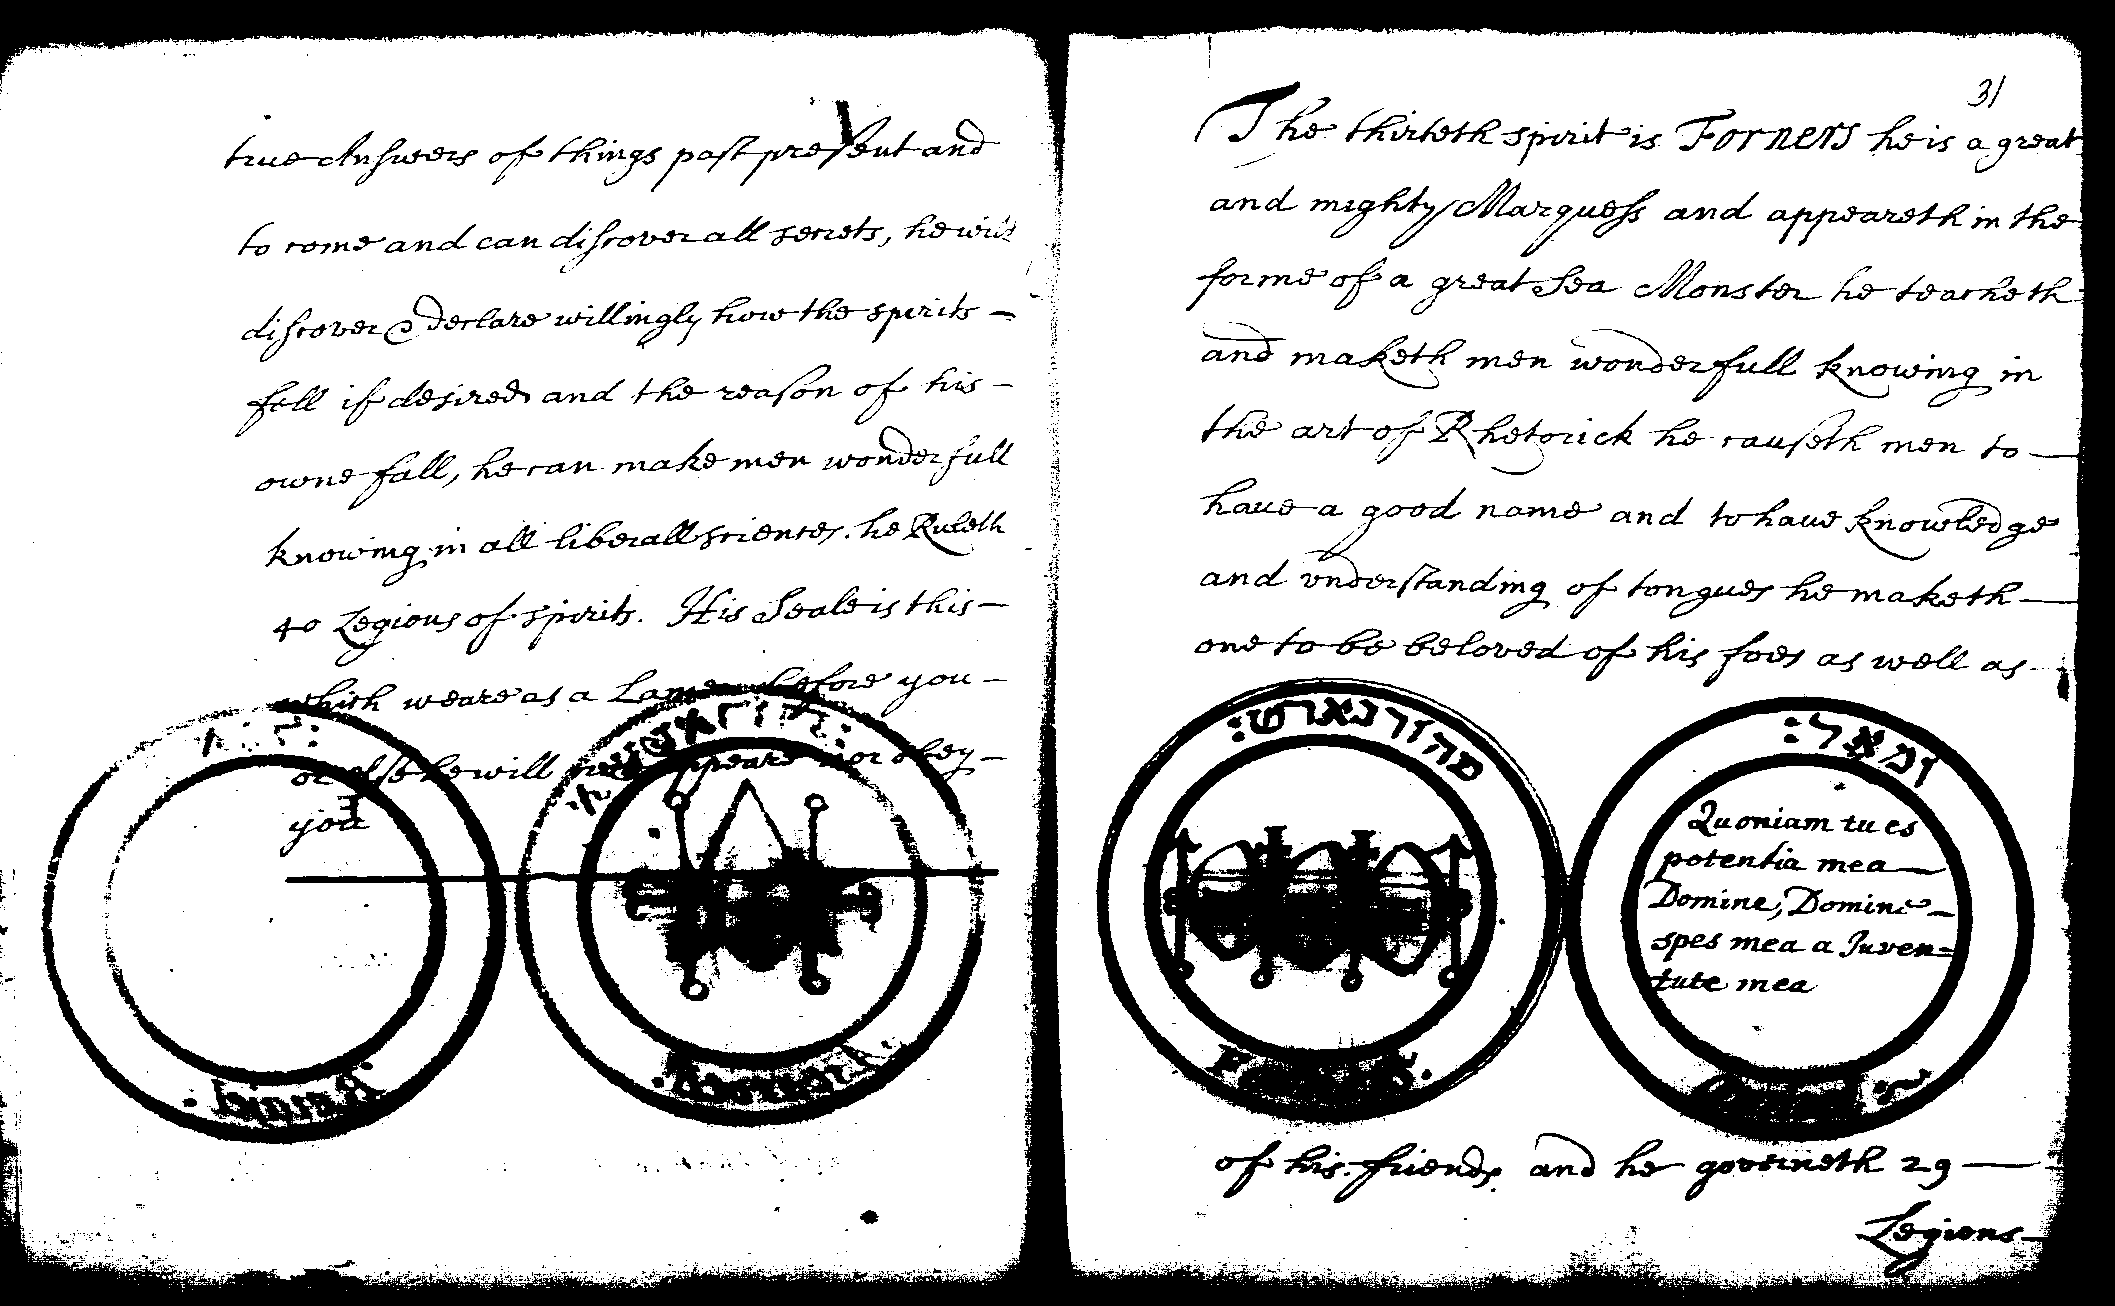 true Answers of things past present and
to come and can discover all secrets, he will
discover & declare willingly how the spirits –
fell if desired and the reason of his –
owne fall, he can make men wonderfull
knowing in all liberall sciences. he Ruleth
40 Legions of spirits. His Seale is this –
which weare as a Lamen before you –
or else he will appeare nor obey –
you
31
The thirteth spirit is Forners he is a great
and mighty Marquess and appeareth in the
forme of a great Sea Monster he teacheth
and maketh men wonderfull knowing in
the art of Rhetorick he causeth men to —
have a good name and to have knowledge
and vnderstanding of tongues he maketh —
one to be beloved of his foes as well as
:מהורנארט
ומאל:
Quoniam tu es
potentia mea —
Domine, Domine –
spes mea a Juven=
tute mea
of his friends. and he governeth 29 —
Legions